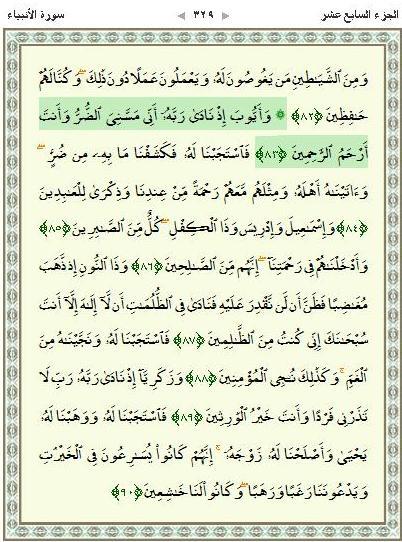 الجزء السابع عشر ٣٢٩ سورة الأنبياء
وَمِنَ ٱلشَّيَٰطِينِ مَن يَغُوصُونَ لَهُۥ وَيَعْمَلُونَ عَمَلًا دُونَ ذَٰلِكَ ۖ وَكُنَّا لَهُمْ
حَٰفِظِينَ ﴿٨٢﴾ ۞ وَأَيُّوبَ إِذْ نَادَىٰ رَبَّهُۥٓ أَنِّى مَسَّنِىَ ٱلضُّرُّ وَأَنتَ
أَرْحَمُ ٱلرَّٰحِمِينَ ﴿٨٣﴾ فَٱسْتَجَبْنَا لَهُۥ فَكَشَفْنَا مَا بِهِۦ مِن ضُرٍّ ۖ
وَءَاتَيْنَٰهُ أَهْلَهُۥ وَمِثْلَهُم مَّعَهُمْ رَحْمَةً مِّنْ عِندِنَا وَذِكْرَىٰ لِلْعَٰبِدِينَ
﴿٨٤﴾ وَإِسْمَٰعِيلَ وَإِدْرِيسَ وَذَا ٱلْكِفْلِ ۖ كُلٌّ مِّنَ ٱلصَّٰبِرِينَ ﴿٨٥﴾
وَأَدْخَلْنَٰهُمْ فِى رَحْمَتِنَآ ۖ إِنَّهُم مِّنَ ٱلصَّٰلِحِينَ ﴿٨٦﴾ وَذَا ٱلنُّونِ إِذ ذَّهَبَ
مُغَٰضِبًا فَظَنَّ أَن لَّن نَّقْدِرَ عَلَيْهِ فَنَادَىٰ فِى ٱلظُّلُمَٰتِ أَن لَّآ إِلَٰهَ إِلَّآ أَنتَ
سُبْحَٰنَكَ إِنِّى كُنتُ مِنَ ٱلظَّٰلِمِينَ ﴿٨٧﴾ فَٱسْتَجَبْنَا لَهُۥ وَنَجَّيْنَٰهُ مِنَ
ٱلْغَمِّ ۚ وَكَذَٰلِكَ نُۨجِى ٱلْمُؤْمِنِينَ ﴿٨٨﴾ وَزَكَرِيَّآ إِذْ نَادَىٰ رَبَّهُۥ رَبِّ لَا
تَذَرْنِى فَرْدًا وَأَنتَ خَيْرُ ٱلْوَٰرِثِينَ ﴿٨٩﴾ فَٱسْتَجَبْنَا لَهُۥ وَوَهَبْنَا لَهُۥ
يَحْيَىٰ وَأَصْلَحْنَا لَهُۥ زَوْجَهُۥٓ ۚ إِنَّهُمْ كَانُوا۟ يُسَٰرِعُونَ فِى ٱلْخَيْرَٰتِ
وَيَدْعُونَنَا رَغَبًا وَرَهَبًا ۖ وَكَانُوا۟ لَنَا خَٰشِعِينَ ﴿٩٠﴾